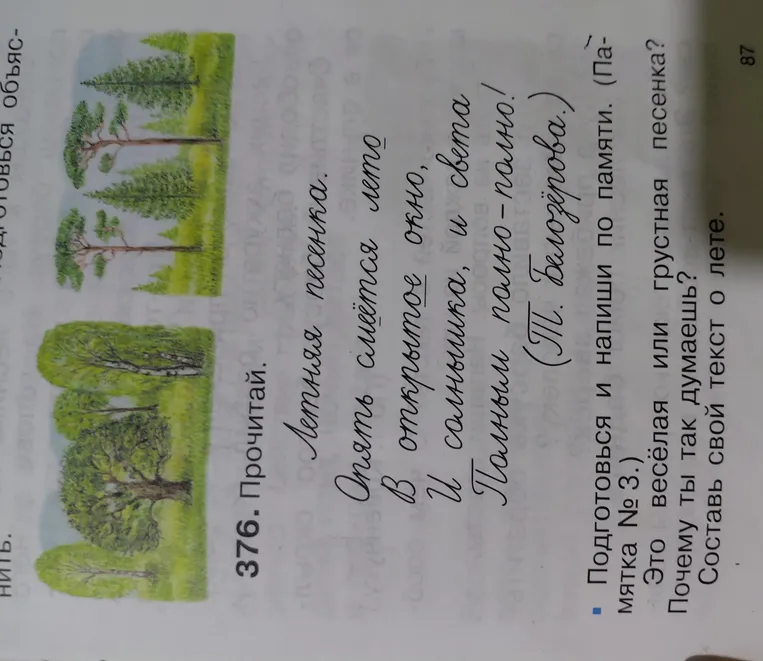 подготовься объяс-
нить.
376. Прочитай.
Летняя песенка.
Опять смеётся лето
В открытое окно,
И солнышка, и света
Полным полно-полно!
(Т. Белозёрова.)
Подготовься и напиши по памяти. (Па-
мятка № 3.)
Это весёлая или грустная песенка?
Почему ты так думаешь?
Составь свой текст о лете.
87